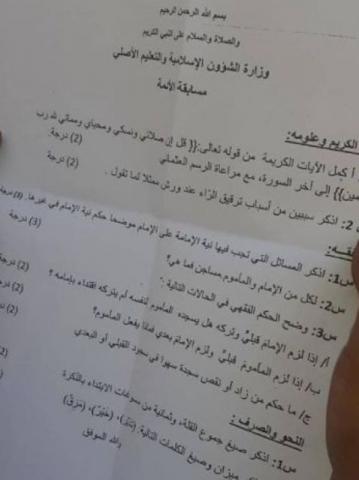 بسم الله الرحمن الرحيم
والصلاة والسلام على النبي الكريم
وزارة الشؤون الإسلامية والتعليم الأصلي
مسابقة الأئمة
الكريم وعلومه:
أ كمل الآيات الكريمة من قوله تعالى:{{ قل إن صلاتي ونسكي ومحياي ومماتي لله رب
مين}} إلى آخر السورة، مع مراعاة الرسم العثماني (2) درجة.
2: اذكر سببين من أسباب ترقيق الراء عند ورش ممثلا لما تقول. (2) درجة
قه:
س1: اذكر المسائل التي تجب فيها نية الإمامة على الإمام موضحا حكم نية الإمام في غيرها. (3) درجة
س2: لكل من الإمام والمأموم مساجن فما هي؟ (3) درجة
س3: وضح الحكم الفقهي في الحالات التالية:
أ/ إذا لزم الإمام قبلي وتركه هل يسجده المأموم لنفسه أم يتركه اقتداء بإمامه؟ (2) درجة
ب/ إذا لزم المأموم قبلي ولزم الإمام بعدي فماذا يفعل المأموم؟ (2) د
ج/ ما حكم من زاد أو نقص سجدة سهوا في سجود القبلي أو البعدي (2)
النحو والصرف:
س1: اذكر صيغ جموع القلة، وثمانية من مسوغات الابتداء بالنكرة
ميزان وصيغ الكلمات التالية:
بالله الموفق